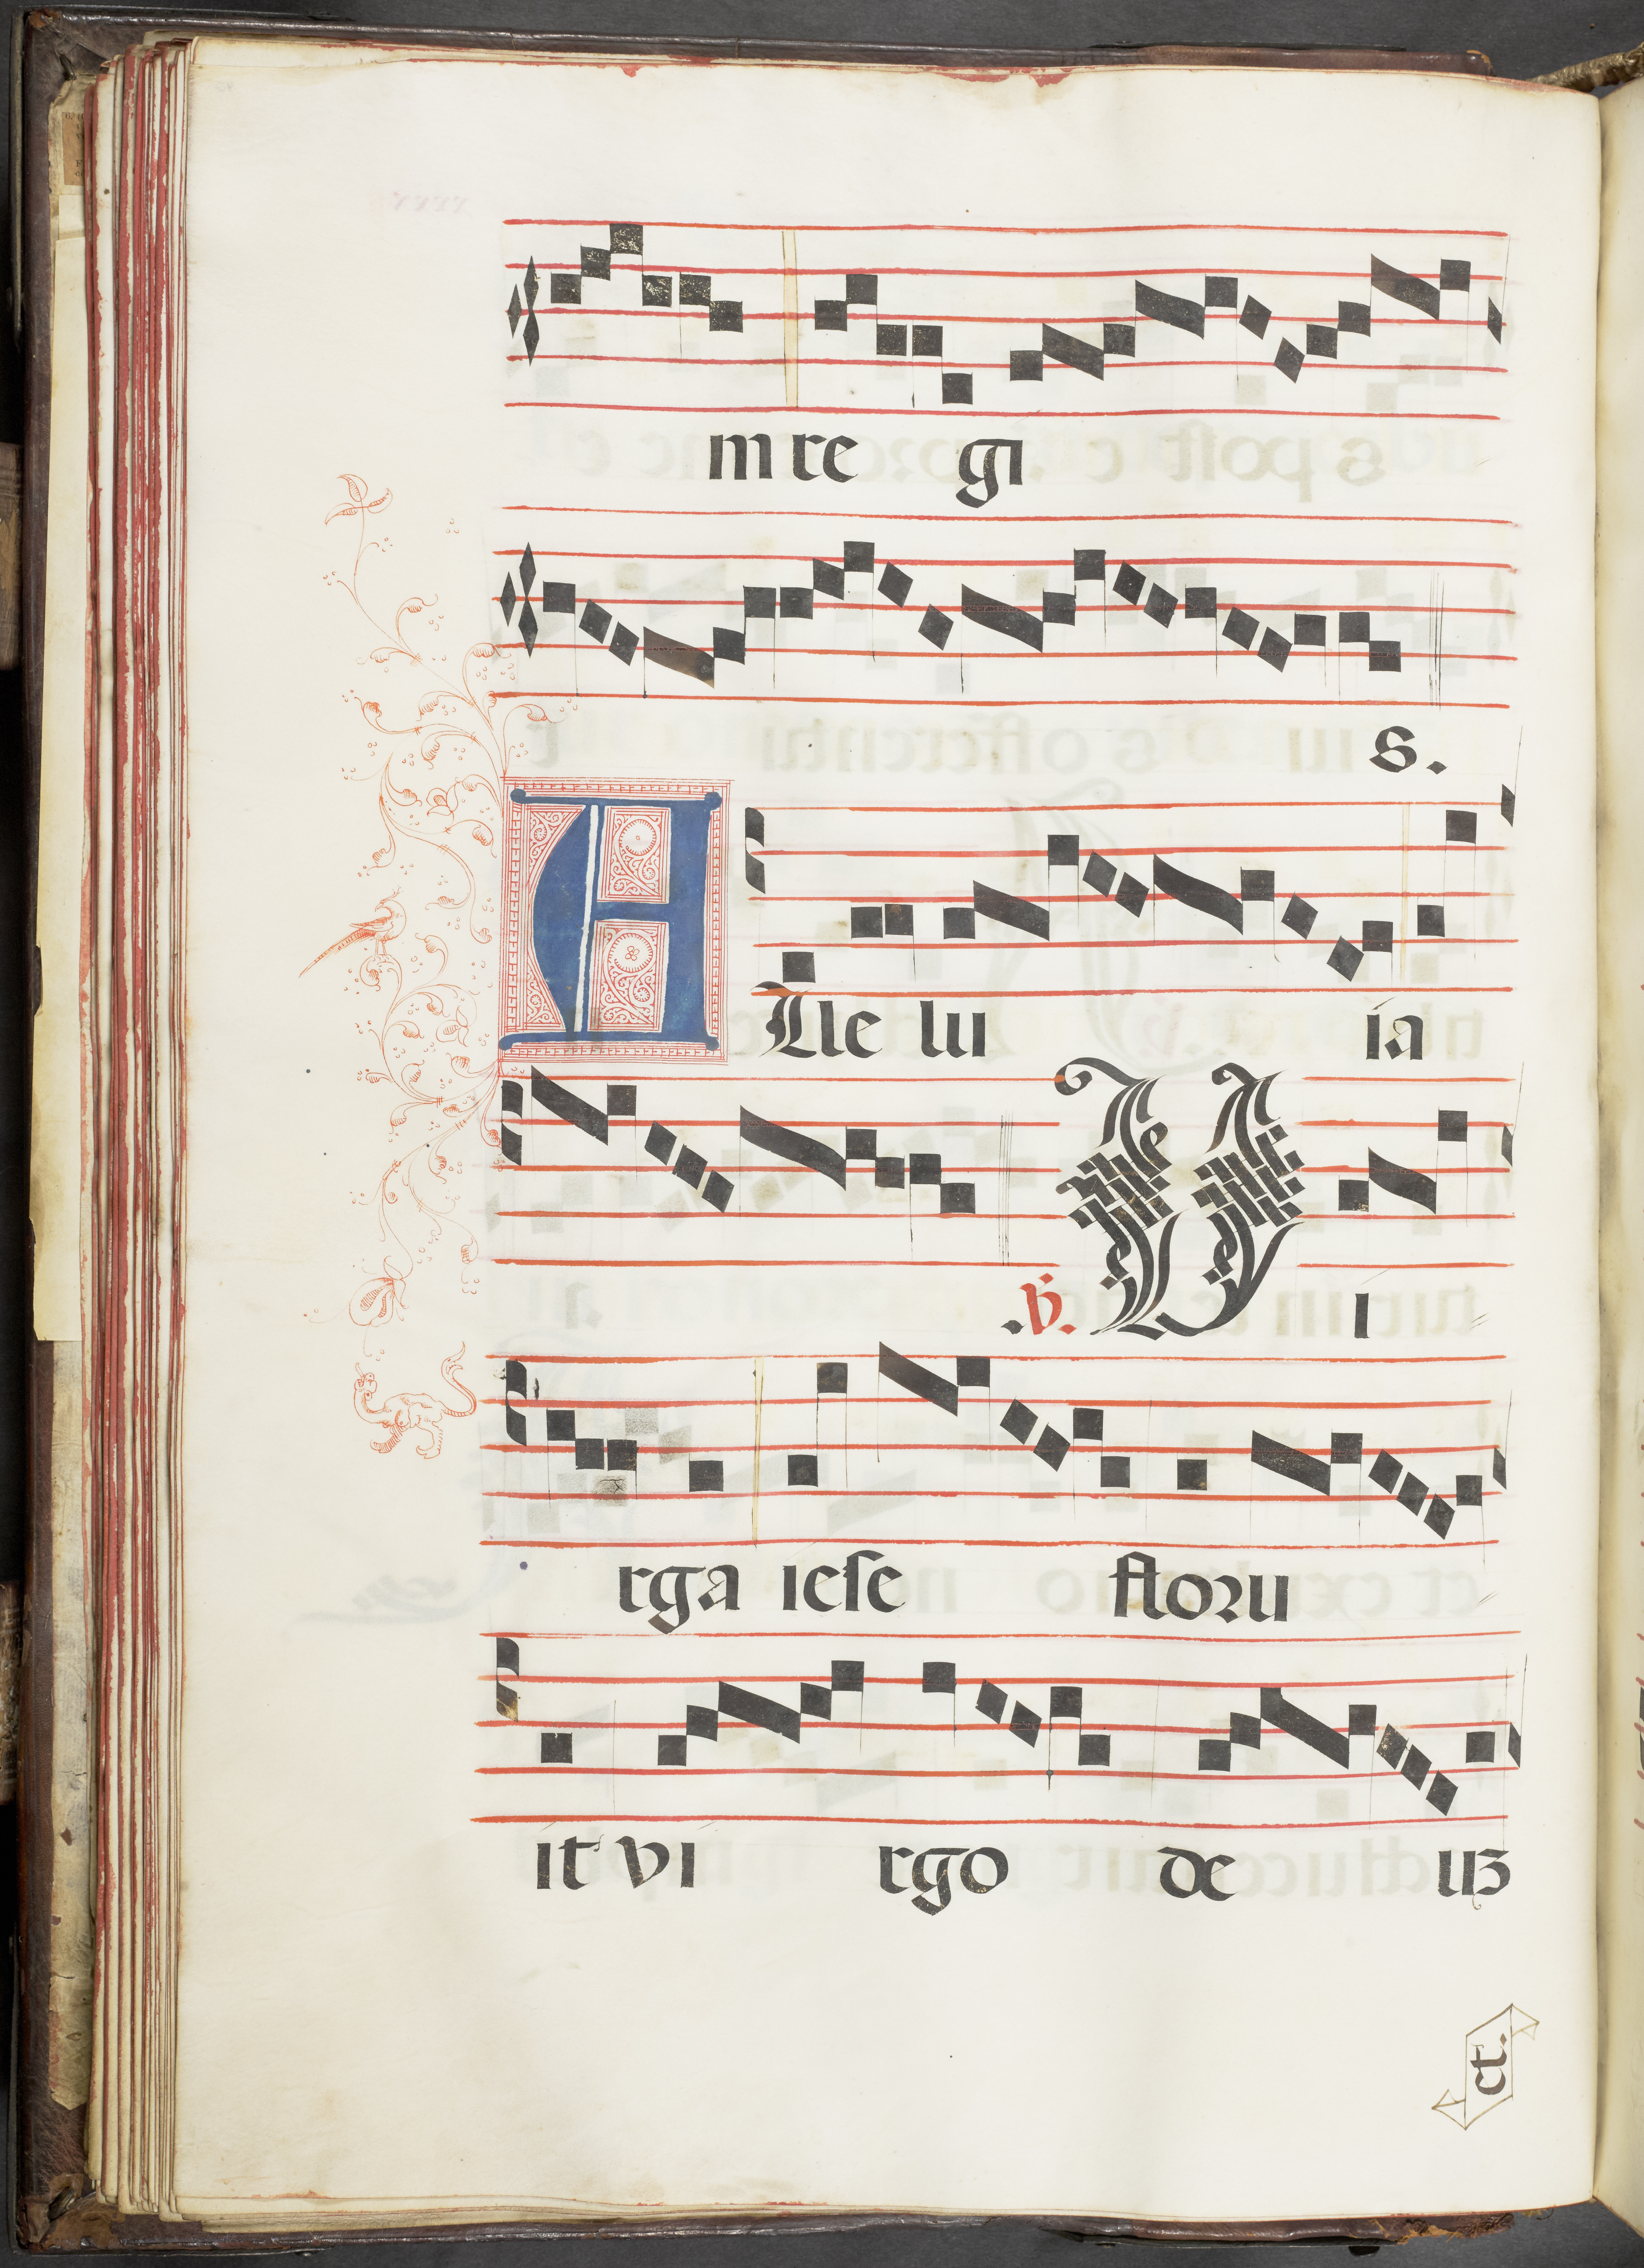 m re gi
s.
ALle lu ia
.℣. VI i
rga iese floru
it vi rgo de uʒ
et.